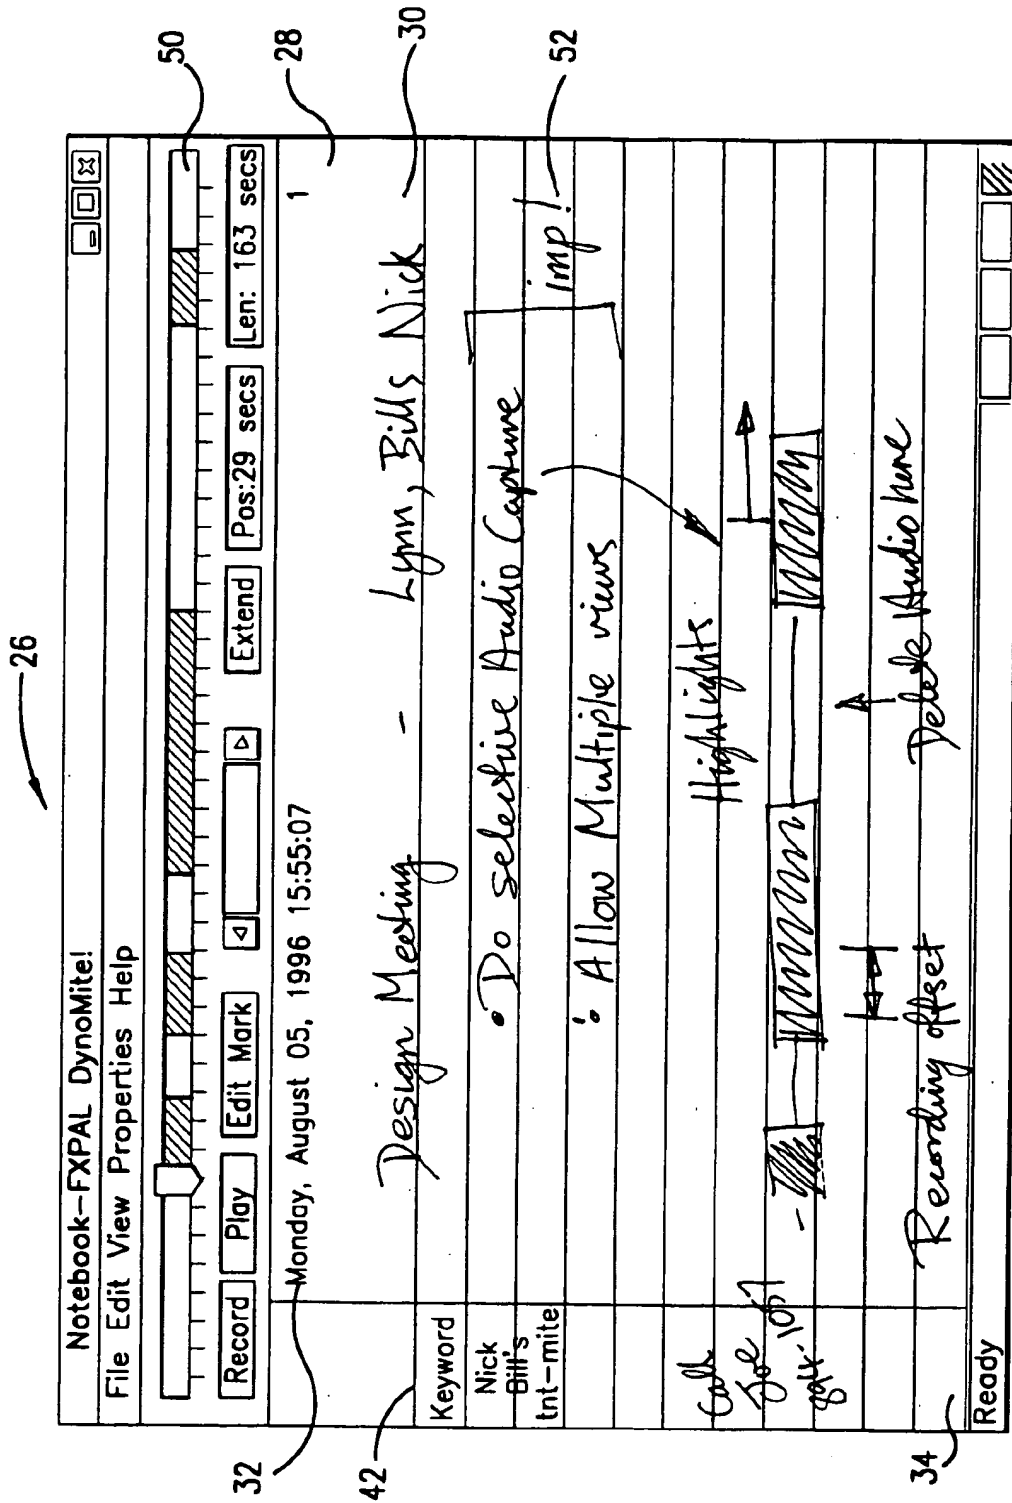 26
Notebook-FXPAL DynoMite!
File Edit View Properties Help
50
Record Play Edit Mark Extend Pos:29 secs Len: 163 secs
32
Monday, August 05, 1996 15:55:07
1
28
Design Meeting - Lynn, Bills Nick
30
42
Keyword
Nick
Bill's
tnt-mite
• Do selective Audio Capture
imp!
52
Allow Multiple views
Highlights
Call
Joe
Recording offset
Delete Audio here
34
Ready